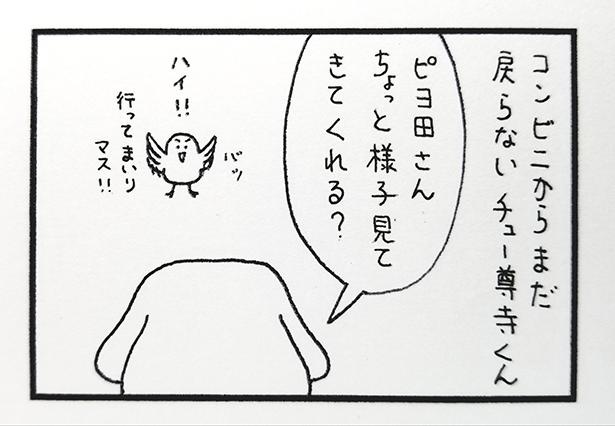 コンビニからまだ
戻らないチュー尊寺くん
ピヨ田さん
ちょっと様子見て
きてくれる？
バッ
ハイ!!
行ってまいり
マス!!